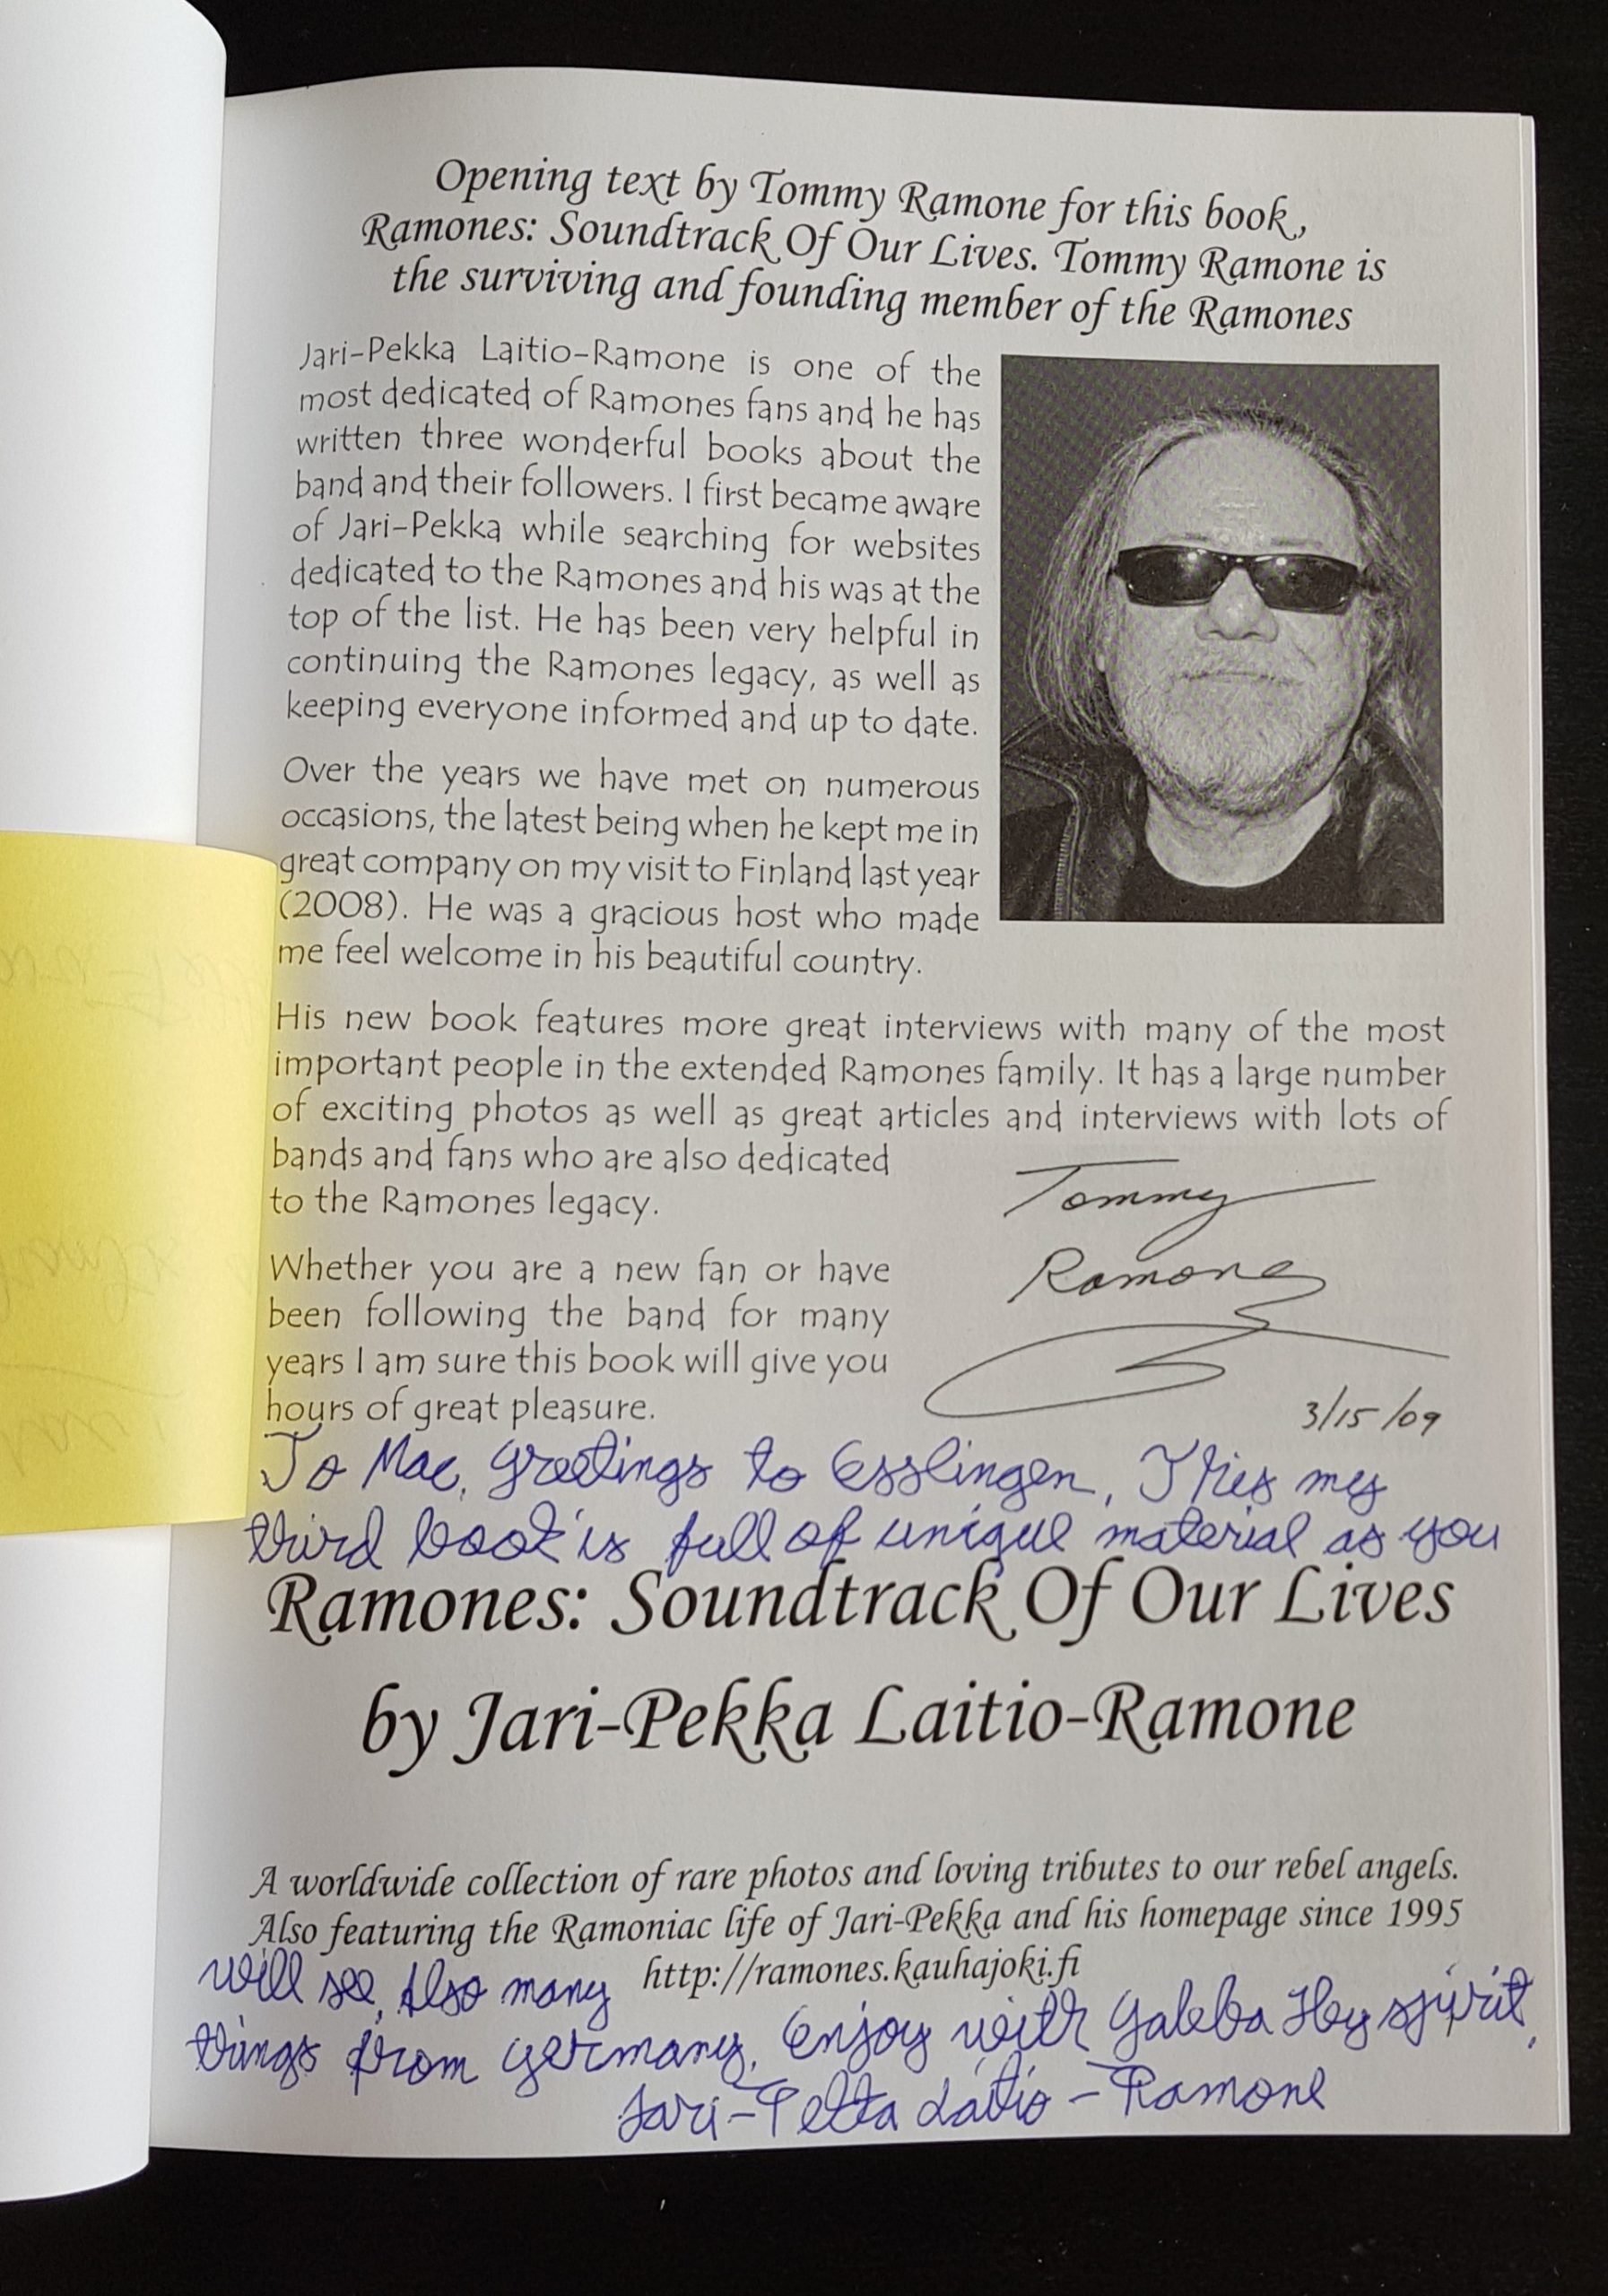 Opening text by Tommy Ramone for this book,
Ramones: Soundtrack Of Our Lives. Tommy Ramone is
the surviving and founding member of the Ramones
Jari-Pekka Laitio-Ramone is one of the
most dedicated of Ramones fans and he has
written three wonderful books about the
band and their followers. I first became aware
of Jari-Pekka while searching for websites
dedicated to the Ramones and his was at the
top of the list. He has been very helpful in
continuing the Ramones legacy, as well as
keeping everyone informed and up to date.
Over the years we have met on numerous
occasions, the latest being when he kept me in
great company on my visit to Finland last year
(2008). He was a gracious host who made
me feel welcome in his beautiful country.
His new book features more great interviews with many of the most
important people in the extended Ramones family. It has a large number
of exciting photos as well as great articles and interviews with lots of
bands and fans who are also dedicated
to the Ramones legacy.
Whether you are a new fan or have
been following the band for many
years I am sure this book will give you
hours of great pleasure.
Tommy
Ramone
3/15/09
To Mac, Greetings to Esslingen, This my
third book is full of uniqul material as you
Ramones: Soundtrack Of Our Lives
by Jari-Pekka Laitio-Ramone
A worldwide collection of rare photos and loving tributes to our rebel angels.
Also featuring the Ramoniac life of Jari-Pekka and his homepage since 1995
http://ramones.kauhajoki.fi
will see, Also many
things from Germany. Enjoy with Gabba Hey spirit,
Jari-Pekka Laitio-Ramone